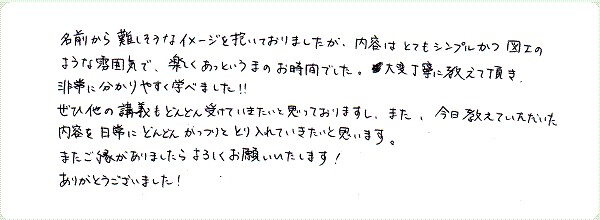 名前から難しそうなイメージを抱いておりましたが、内容はとてもシンプルかつ図工の
ような雰囲気で、楽しくあっというまのお時間でした。大変丁寧に教えて頂き
非常に分かりやすく学べました!!
ぜひ他の講義もどんどん受けていきたいと思っておりますし、また、今日教えていただいた
内容を日常にどんどんがっつりととり入れていきたいと思います。
またご縁がありましたらよろしくお願いいたします!
ありがとうございました!